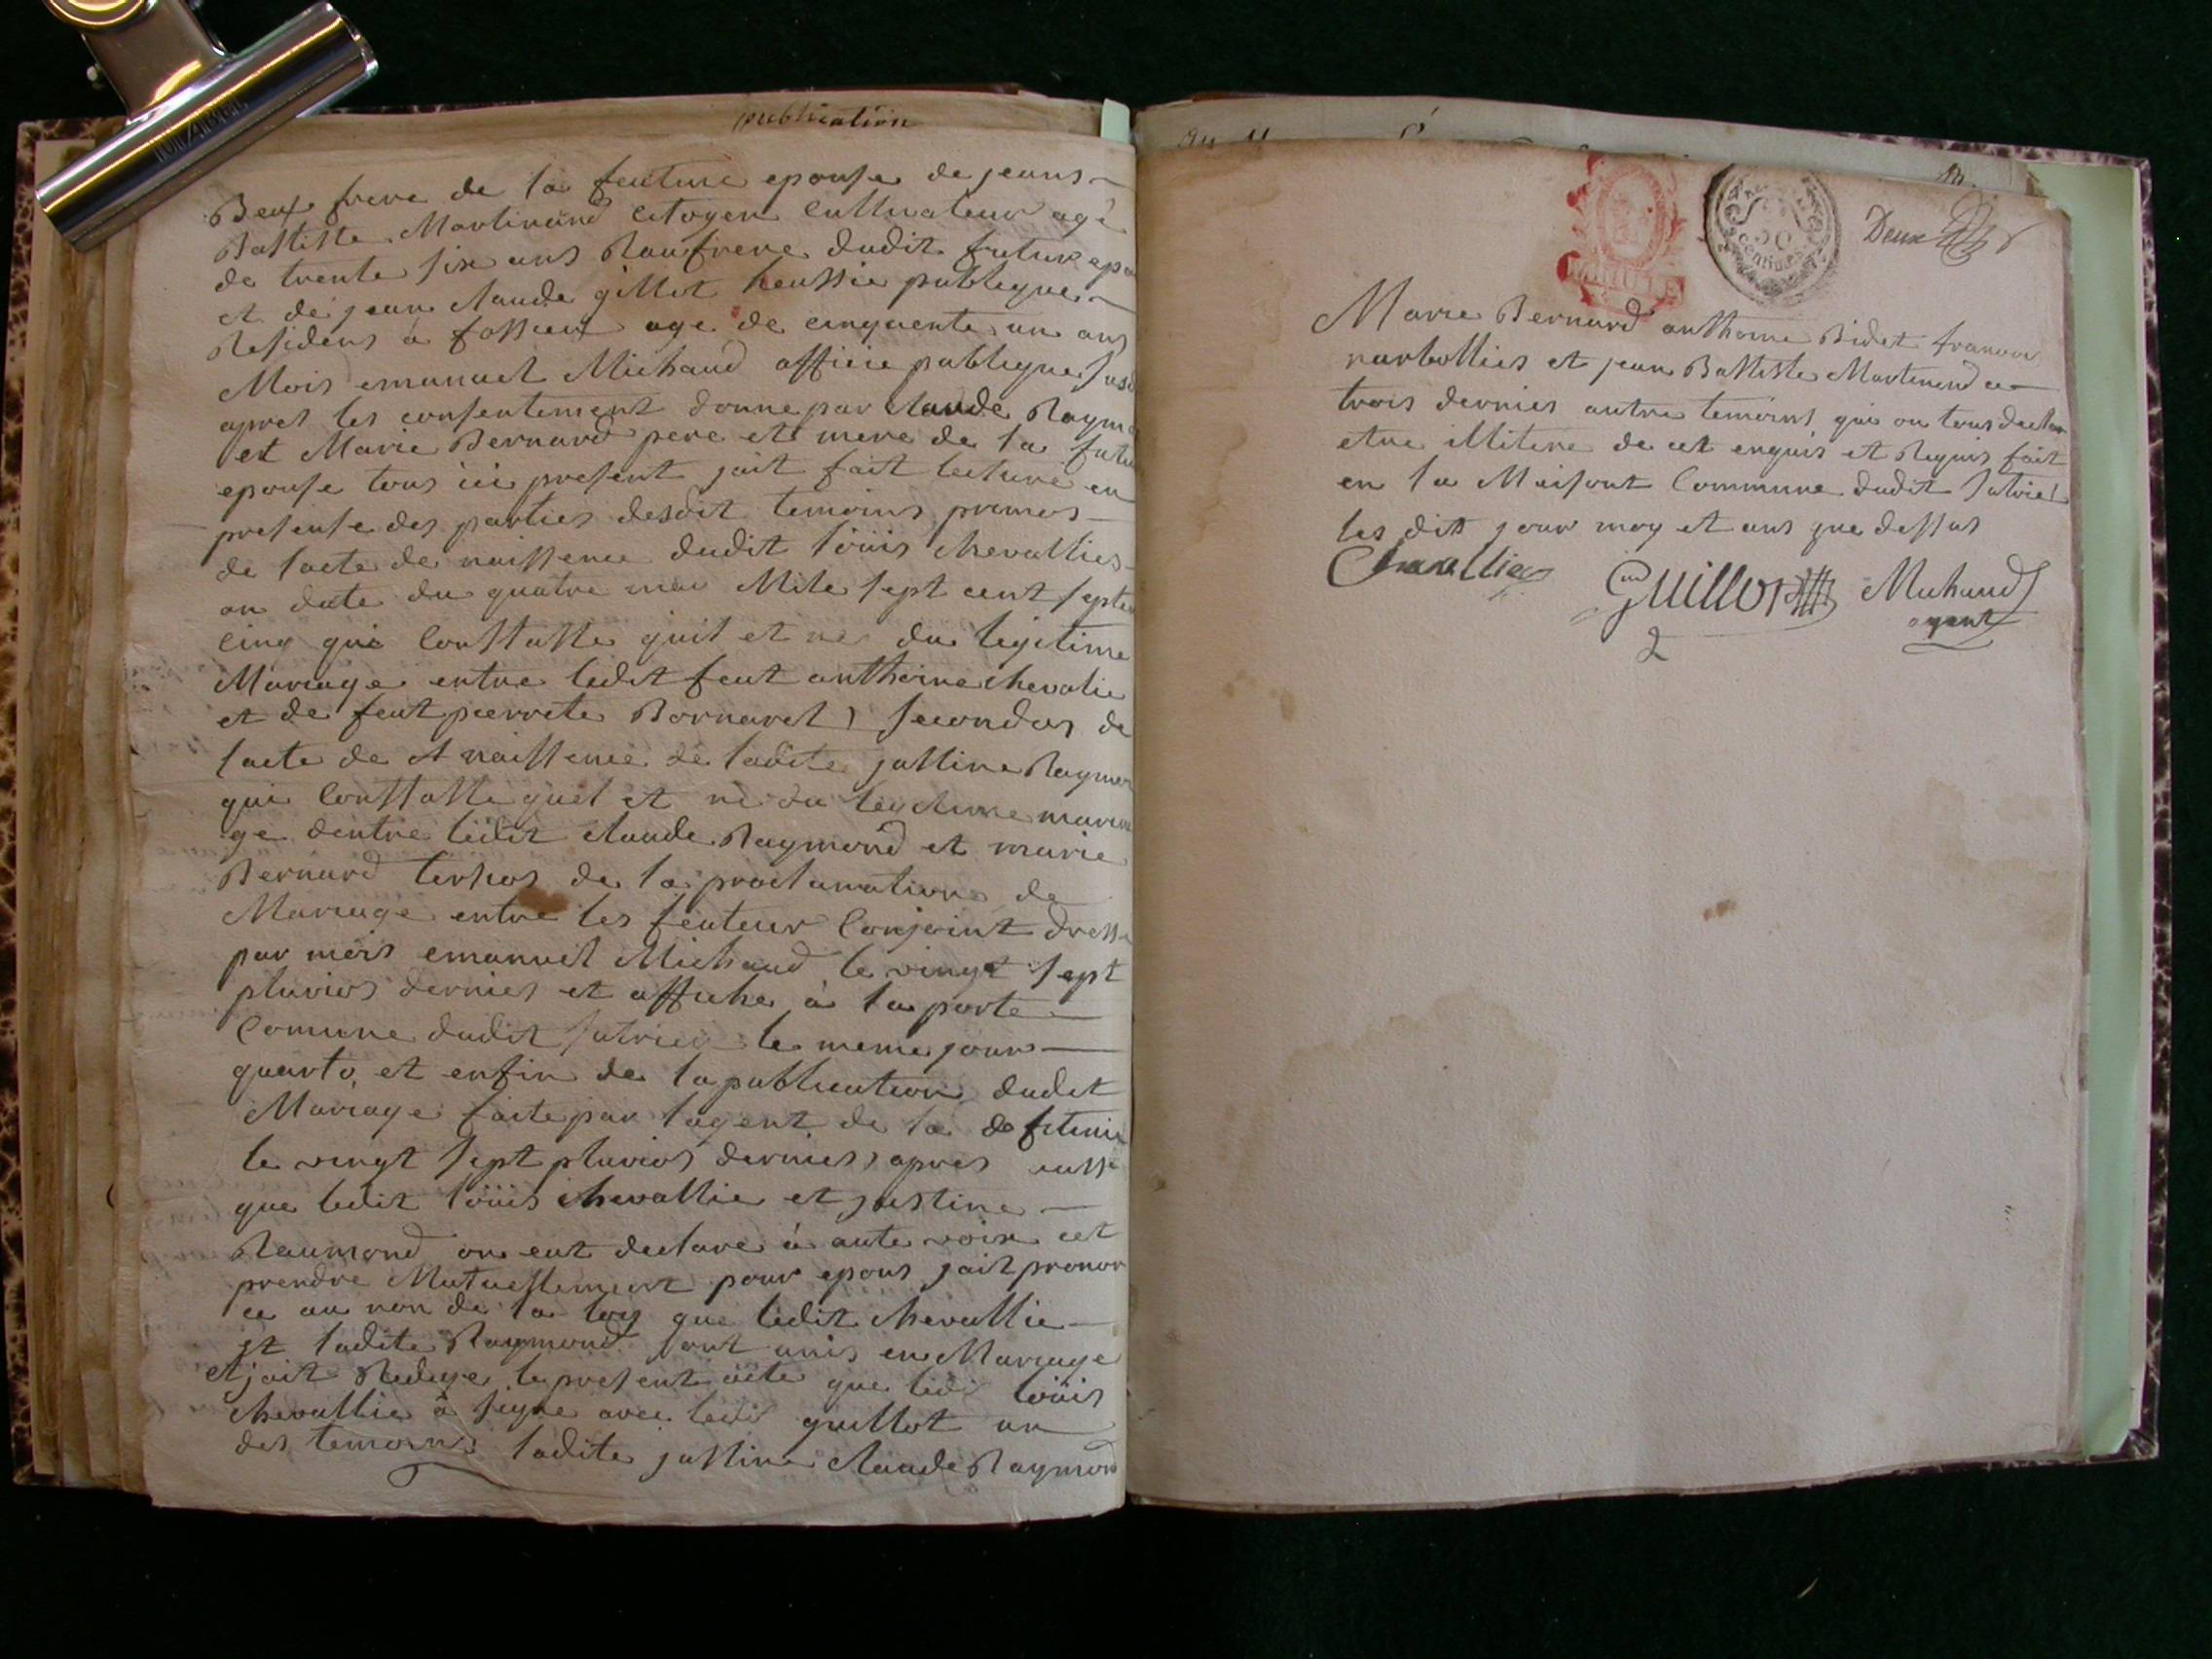 publication
Beux frere de la feuture epouse de jeans
Battiste Martinand Citoyen Cultivateur agé
de trente six ans Baufrere dudit futur epou
et de jean claude gillot heussie publique
Residens a fossieux age de cinquente un ans
Mois emanuel Michaud afficie publique susd
apres les consentement donne par claude Raymo
et Marie Bernard pere et mere de la futu
epouse tous ici present jait fait lecture en
presense des parties desdit temoins primos
de lacte de naissence dudit loüis chevallies
an date du quatre mai Mile sept cent septe
cinq qui Constatte quil et ne du legitime
Mariage entre ledit feut anthoine chevalie
et de feut pierrete Bornarel) secondos de
lacte de naissence de ladite justine Raymon
qui Constatte quel et né du legitime maria
ge dentre ledit claude Raymond et marie
Bernard terhos de la proclamation de
Mariage entre les feuteur Conjoint dresse
par mois emanuel Michaud le vingt sept
pluvios dernies et affiche à la porte
Comune dudit sutrieu le meme jour
quarto et enfin de la publication dudit
Mariage faite par lagent de la
le vingt sept pluvios dernies apres ausse
que ledit loüis chevallie et justine
Raumond on eut declare à aute voix cet
prendre Mutuellement pour epous jait pronon
ce au non de la loy que ledit chevallie
et ladite Raymond sont unis en Mariage
et jait Redige le present acte que ledi loüis
chevallie a signe avec ledi guillot un
des temoins ladite justine claude Raymond
50
centimes
Deux
Marie Bernard anthoine Bidet francois
narbollies et jean Battiste Martinend ce
trois dernies autre temoins qui on tous declar
etre illitere de cet enquis et Requis fait
en la Maisont Commune dudit sutrieu
les dit jour moy et ans que dessus
Chevallier Guillot Michaud
agent